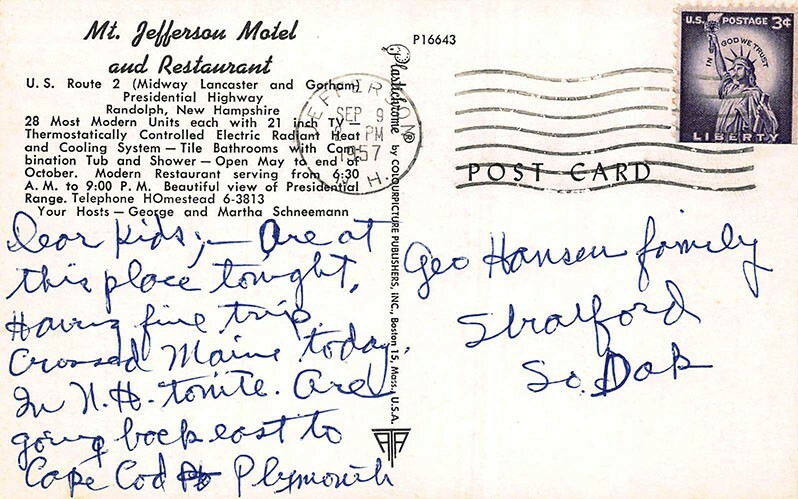 Mt. Jefferson Motel
and Restaurant
U. S. Route 2 (Midway Lancaster and Gorham)
Presidential Highway
Randolph, New Hampshire
28 Most Modern Units each with 21 inch TV —
Thermostatically Controlled Electric Radiant Heat
and Cooling System — Tile Bathrooms with Com-
bination Tub and Shower — Open May to end of
October. Modern Restaurant serving from 6:30
A. M. to 9:00 P. M. Beautiful view of Presidential
Range. Telephone HOmestead 6-3813
Your Hosts — George and Martha Schneemann
Dear Kids; — Are at
this place tonight,
Having fine trip.
Crossed Maine today.
In N.H. tonite. Are
going back east to
Cape Cod Plymouth
Plastichrome ® by COLOURPICTURE PUBLISHERS, INC., Boston 15, Mass., U.S.A.
P16643
JEFFERSON
SEP 9
PM
1957
N. H.
U.S. POSTAGE 3¢
IN GOD WE TRUST
LIBERTY
POST CARD
Geo Hansen family
Stratford
So. Dak